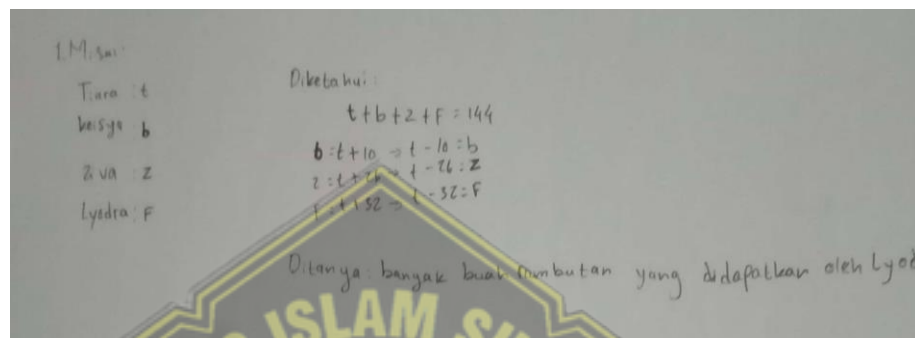 1. Misal:
Tiara : t
keisya b
Ziva : z
Lyodra : F
Diketahui:
t+b+z+F = 144
b = t+10 → t - 10 = b
z = t+26 → t - 26 = z
F = t+32 → t - 32 = F
Ditanya : banyak buah rambutan yang didapatkan oleh Lyod
ISLAM